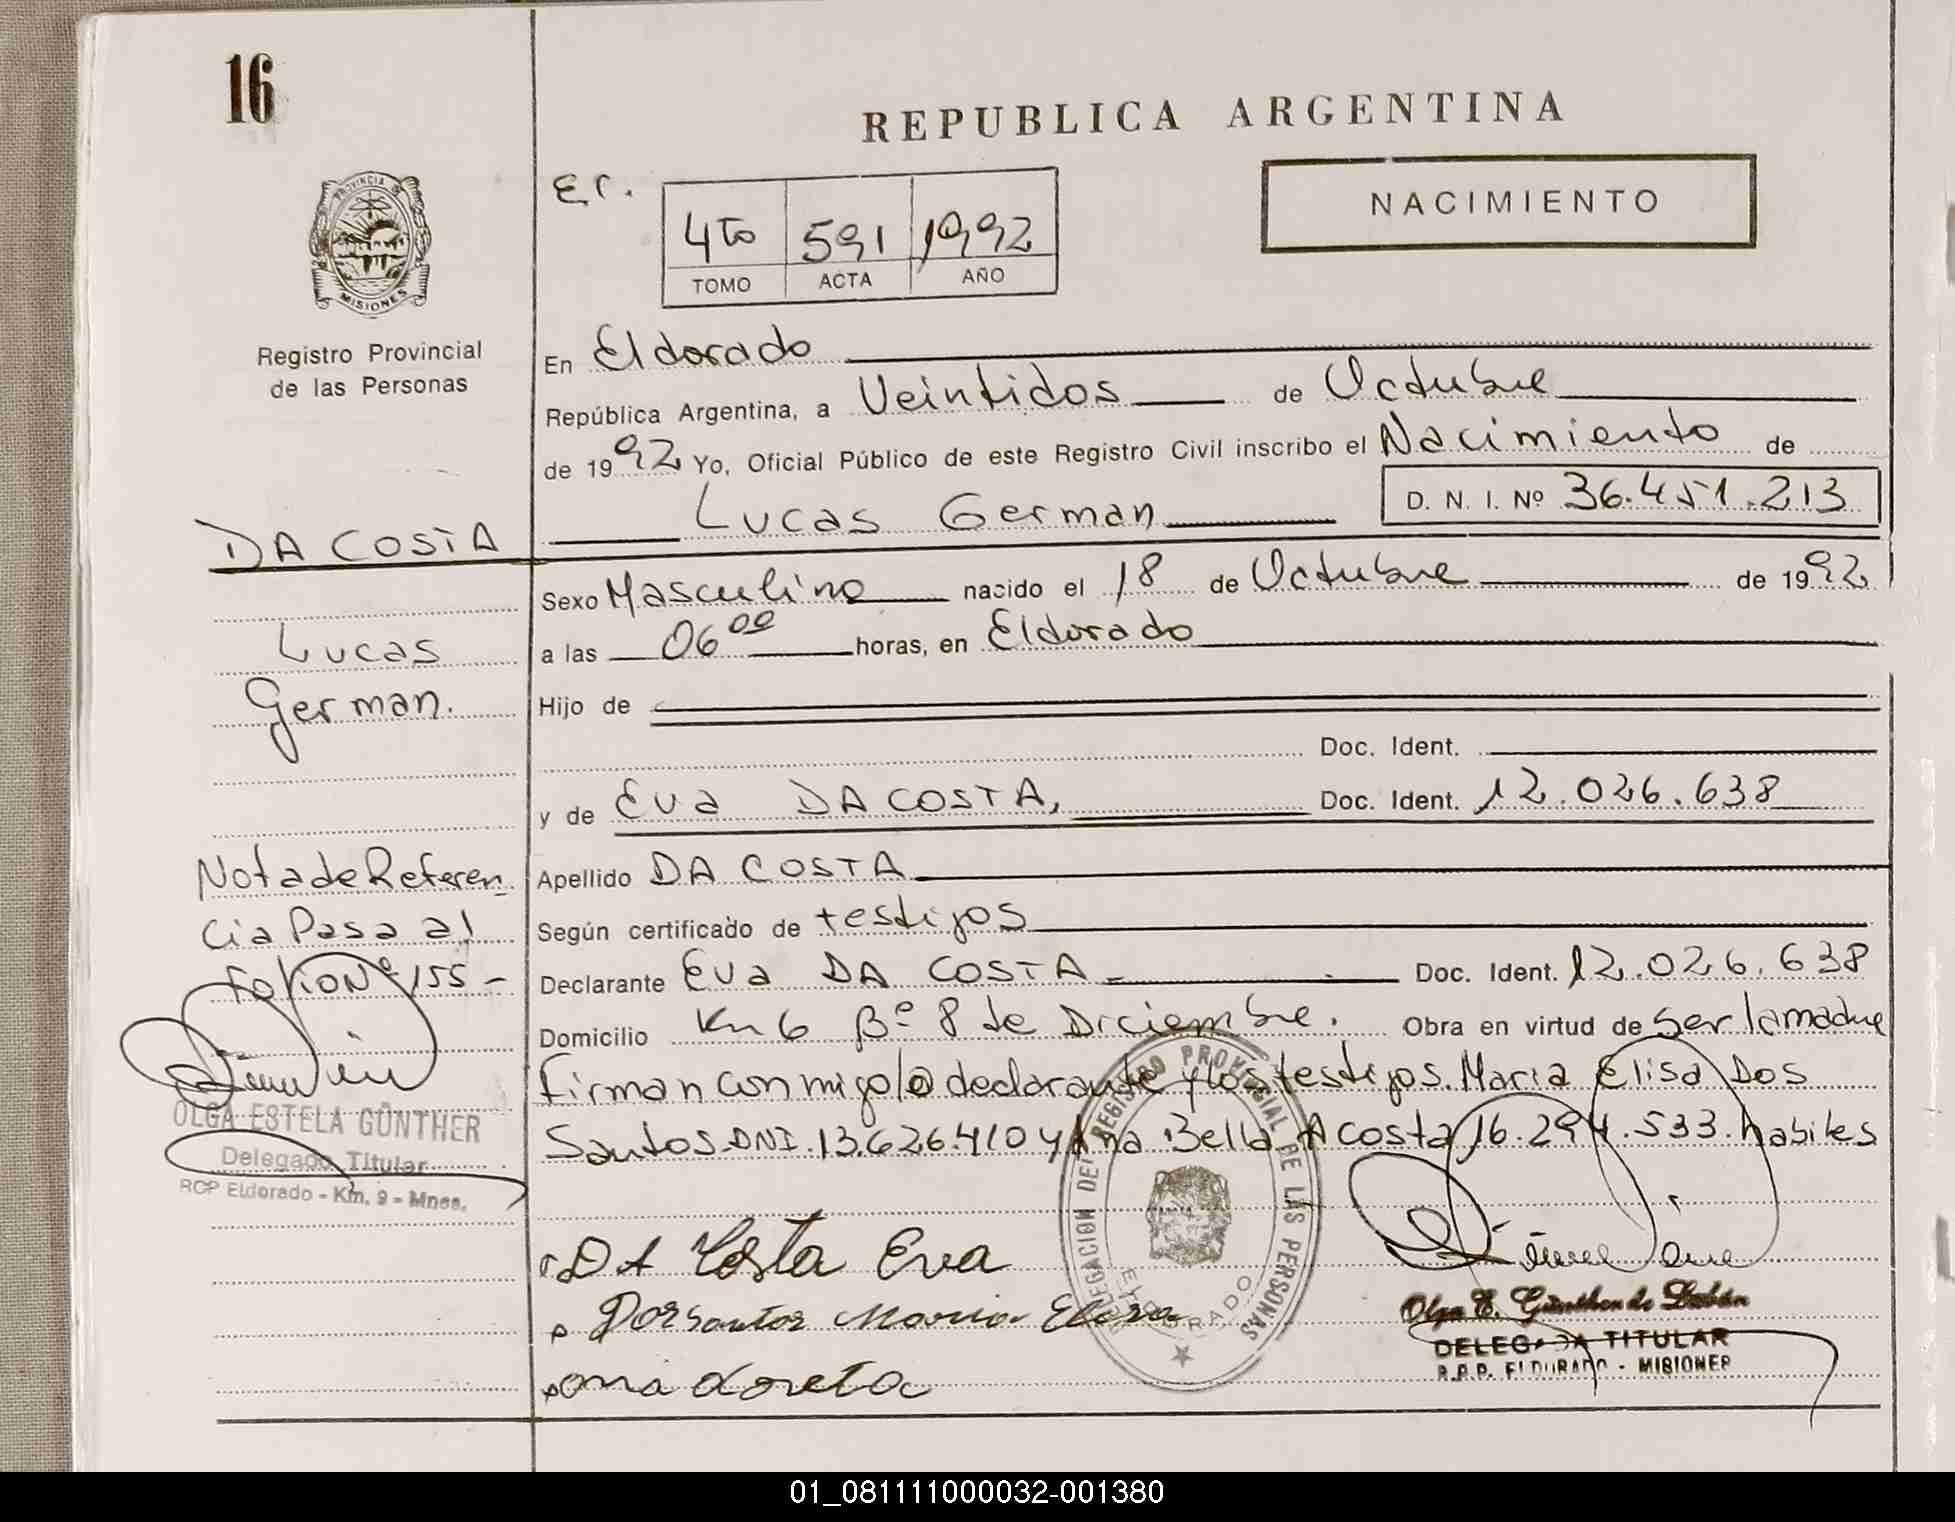 16
REPUBLICA ARGENTINA
NACIMIENTO
Er.
4to 591 1992
TOMO ACTA AÑO
PROVINCIA
MISIONES
Registro Provincial
de las Personas
En Eldorado
República Argentina, a Veintidos de Octubre
de 1992 Yo, Oficial Público de este Registro Civil inscribo el Nacimiento de
Lucas German D. N. I. Nº 36.451.213
DA COSTA
Lucas
German.
Sexo Masculino nacido el 18 de Octubre de 1992
a las 06 00 horas, en Eldorado
Hijo de
Doc. Ident.
y de Eva DA COSTA, Doc. Ident. 12.026.638
Apellido DA COSTA
Según certificado de testigos
Declarante Eva DA COSTA Doc. Ident. 12.026.638
Domicilio Km 6 Bº 8 de Diciembre. Obra en virtud de ser la madre
firman conmigo la declarante y los testigos. Maria Elisa Dos
Santos DNI. 13.626.410 y Ana Bella Acosta 16.294.533. habiles
Nota de Referen
cia Pasa al
folio Nº 155 -
OLGA ESTELA GÜNTHER
Delegado Titular
RCP Eldorado - Km. 9 - Mnes.
DA Costa Eva
Dos santos Maria Elisa
DELEGACION DEL REGISTRO PROVINCIAL DE LAS PERSONAS
ELDORADO
Olga E. Günther de
DELEGADA TITULAR
R.P.P. ELDORADO - MISIONES
01_081111000032-001380